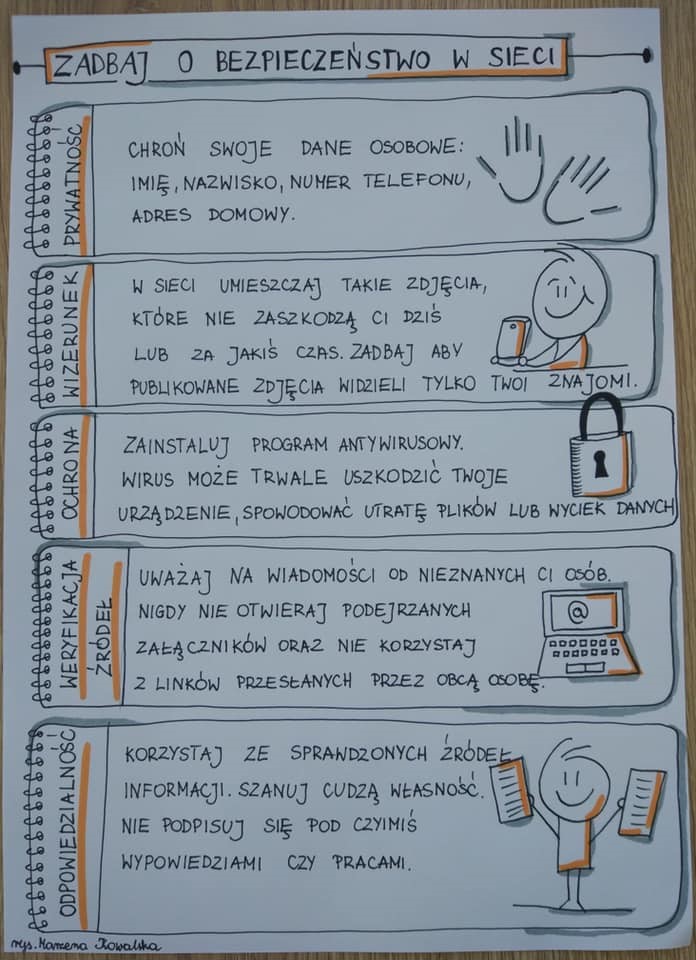 ZADBAJ O BEZPIECZEŃSTWO W SIECI
PRYWATNOŚĆ
CHROŃ SWOJE DANE OSOBOWE:
IMIĘ, NAZWISKO, NUMER TELEFONU,
ADRES DOMOWY.
WIZERUNEK
W SIECI UMIESZCZAJ TAKIE ZDJĘCIA,
KTÓRE NIE ZASZKODZĄ CI DZIŚ
LUB ZA JAKIŚ CZAS. ZADBAJ ABY
PUBLIKOWANE ZDJĘCIA WIDZIELI TYLKO TWOI ZNAJOMI.
OCHRONA
ZAINSTALUJ PROGRAM ANTYWIRUSOWY.
WIRUS MOŻE TRWALE USZKODZIĆ TWOJE
URZĄDZENIE, SPOWODOWAĆ UTRATĘ PLIKÓW LUB WYCIEK DANYCH
WERYFIKACJA
ŹRÓDEŁ
UWAŻAJ NA WIADOMOŚCI OD NIEZNANYCH CI OSÓB.
NIGDY NIE OTWIERAJ PODEJRZANYCH
ZAŁĄCZNIKÓW ORAZ NIE KORZYSTAJ
Z LINKÓW PRZESŁANYCH PRZEZ OBCĄ OSOBĘ.
@
ODPOWIEDZIALNOŚĆ
KORZYSTAJ ZE SPRAWDZONYCH ŹRÓDEŁ
INFORMACJI. SZANUJ CUDZĄ WŁASNOŚĆ.
NIE PODPISUJ SIĘ POD CZYIMIŚ
WYPOWIEDZIAMI CZY PRACAMI.
rys. Marzena Kowalska